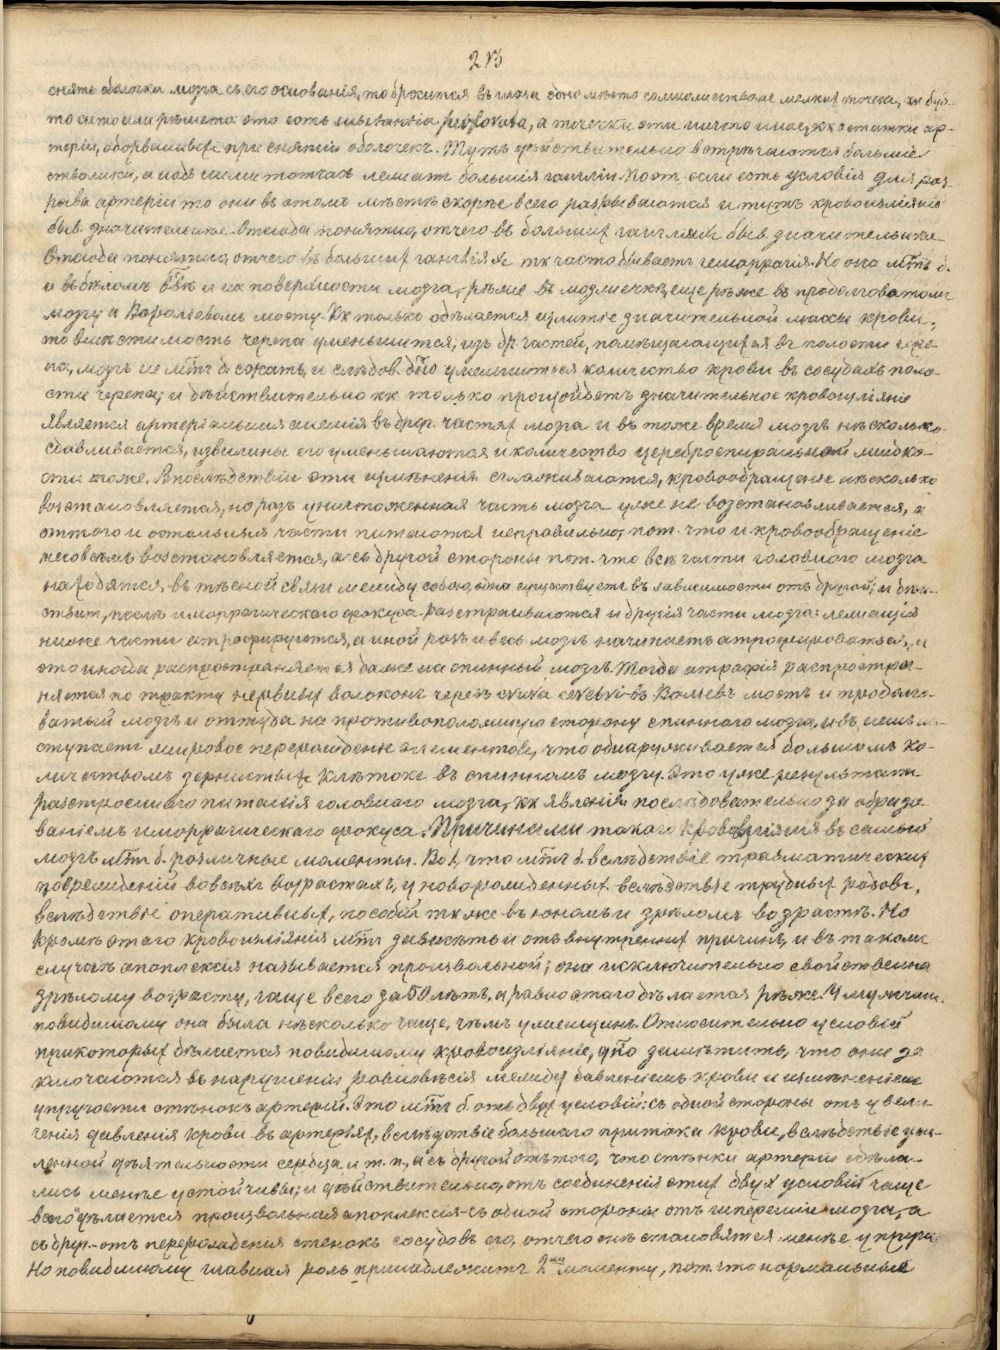 213
снять оболочки мозга съ его основанія, то бросится въ глаза одно мѣсто самыми мелкія точки, какъ буд-
то сито или рѣшето: это есть substantia perforata, а точечки эти ничто иное, кк остатки ар-
терій, оборвавшихся при снятіи оболочекъ. Тутъ дѣйствительно встрѣчаются большіе
стволики, а надъ ними тотчасъ лежатъ большія гангліи. Пот. если есть условія для раз-
рыва артеріи то они въ этомъ мѣстѣ скорѣе всего разрываются и тутъ кровоизліяніе
быв. значительнѣе. Отсюда понятно, отчего въ большихъ гангліяхъ быв. значительнѣе
Отсюда понятно, отчего въ большихъ гангліяхъ тк часто бываетъ геморрагія. Но она мжтъ б.
и въ бѣломъ в-вѣ и на поверхности мозга, рѣже въ мозжечкѣ, еще рѣже въ продолговатомъ
мозгу и Вароліевомъ мосту. Кк только дѣлается излитіе значительной массы крови,
то вмѣстимость черепа уменьшится, изъ др. частей, помѣщающихся въ полости чере-
па, мозгъ не мжтъ б. сжатъ, и слѣдов. должно уменьшиться количество крови въ сосудахъ поло-
сти черепа; и дѣйствительно кк только произойдетъ значительное кровоизліяніе
является артеріальная анемія въ друг. частяхъ мозга и въ тоже время мозгъ нѣсколько
сдавливается, извилины его уменьшаются и количество цереброспинальной жидко-
сти тоже. Впослѣдствіи эти измѣненія сглаживаются, кровообращеніе нѣсколько
возстановляется, но разъ уничтоженная часть мозга уже не возстановливается, а
оттого и остальныя части питаются неправильно, пот. что и кровообращеніе
несовсѣмъ возстановляется, а съ другой стороны пот. что всѣ части головного мозга
находятся въ тѣсной связи между собою, одна существуетъ въ зависимости отъ другой; и дѣй-
ствит., послѣ гморрагическаго фокуса разстраиваются и другія части мозга: лежащія
ниже части атрофируются, а иной разъ и весь мозгъ начинаетъ атрофироваться, и
это иногда распространяется даже на спинный мозгъ. Тогда атрофія распростра-
няется по тракту нервныхъ волоконъ черезъ crura cerebri въ Вольевъ мостъ и продолго-
ватый мозгъ и оттуда на противоположную сторону спиннаго мозга, и въ немъ на-
ступаетъ жировое перерожденіе элементовъ, что обнаруживается большимъ ко-
личествомъ зернистыхъ клѣтокъ въ спинномъ мозгу. Это уже результатъ
разстроеннаго питанія головнаго мозга, кк явленія послѣдовательно за образо-
ваніемъ гморрагическаго фокуса. Причинами такого кровоизліянія въ самый
мозгъ мгтъ б. различные моменты. Во 1, что мжтъ б. вслѣдствіе травматическихъ
поврежденій во всѣхъ возрастахъ, у новорожденныхъ вслѣдствіе трудныхъ родовъ,
вслѣдствіе оперативныхъ пособій тк же въ юномъ и зрѣломъ возрастѣ. Но
кромѣ этаго кровоизліянія мгтъ зависѣть и отъ внутреннихъ причинъ, и въ такомъ
случаѣ апоплексія называется произвольной; она исключительно свойственна
зрѣлому возрасту, чаще всего за 50 лѣтъ, а ранѣе этаго дѣлается рѣже. У мужчинъ
повидимому она была нѣсколько чаще, чѣмъ у женщинъ. Относительно условій
при которыхъ дѣлается повидимому кровоизліяніе, должно замѣтить, что они за-
ключаются въ нарушеніи равновѣсія между давленіемъ крови и измѣненіемъ
упругости стѣнокъ артерій. Это мжтъ б. отъ двухъ условій: съ одной стороны отъ увели-
ченія давленія крови въ артеріяхъ, вслѣдствіе большаго притока крови, вслѣдствіе уси-
ленной дѣятельности сердца и т. п., а съ другой отъ того, что стѣнки артеріи сдѣла-
лись менѣе устойчивы; и дѣйствительно, отъ соединенія этихъ двухъ условій чаще
всего дѣлается произвольная апоплексія - съ одной стороны отъ гипереміи мозга, а
съ друг. - отъ перерожденія стѣнокъ сосудовъ его, отчего онѣ становятся менѣе упруги.
Но повидимому главная роль принадлежитъ 2му моменту, пот. что нормальные